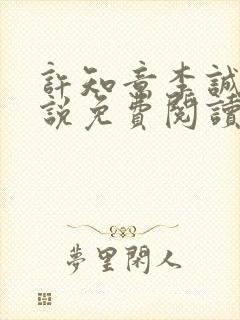 許知章李誠
說免費閱讀
夢里閑人